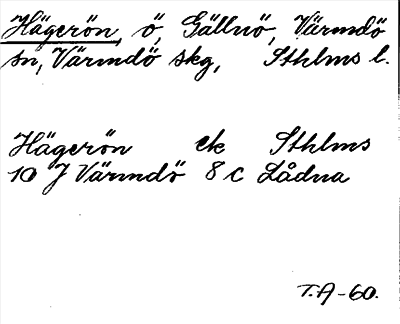 Hägerön, ö, Gällnö, Värmdö
sn, Värmdö skg, Sthlms l.
Hägerön ek Sthlms
10 J Värmdö 8 c Lådna
T.A-60.